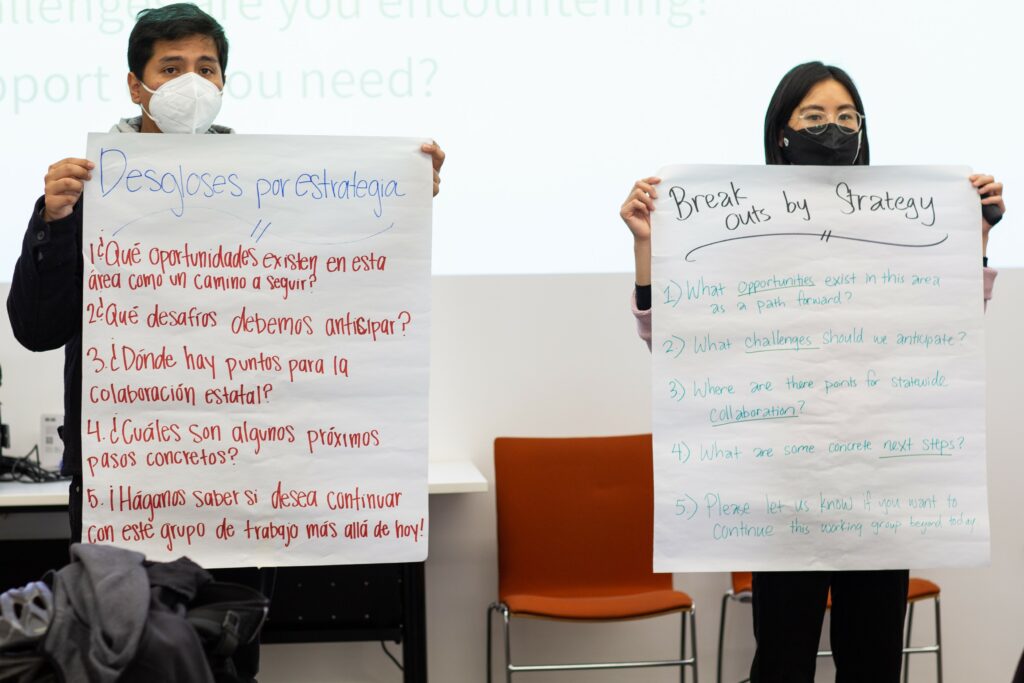 allenges are you encountering?
pport do you need?
Desgloses por estrategia
1¿Qué oportunidades existen en esta
área como un camino a seguir?
2¿Qué desafíos debemos anticipar?
3.¿Dónde hay puntos para la
colaboración estatal?
4.¿Cuáles son algunos próximos
pasos concretos?
5.¡Háganos saber si desea continuar
con este grupo de trabajo más allá de hoy!
Break outs by Strategy
1) What opportunities exist in this area
as a path forward?
2) What challenges should we anticipate?
3) Where are there points for statewide
collaboration?
4) What are some concrete next steps?
5.) Please let us know if you want to
continue this working group beyond today